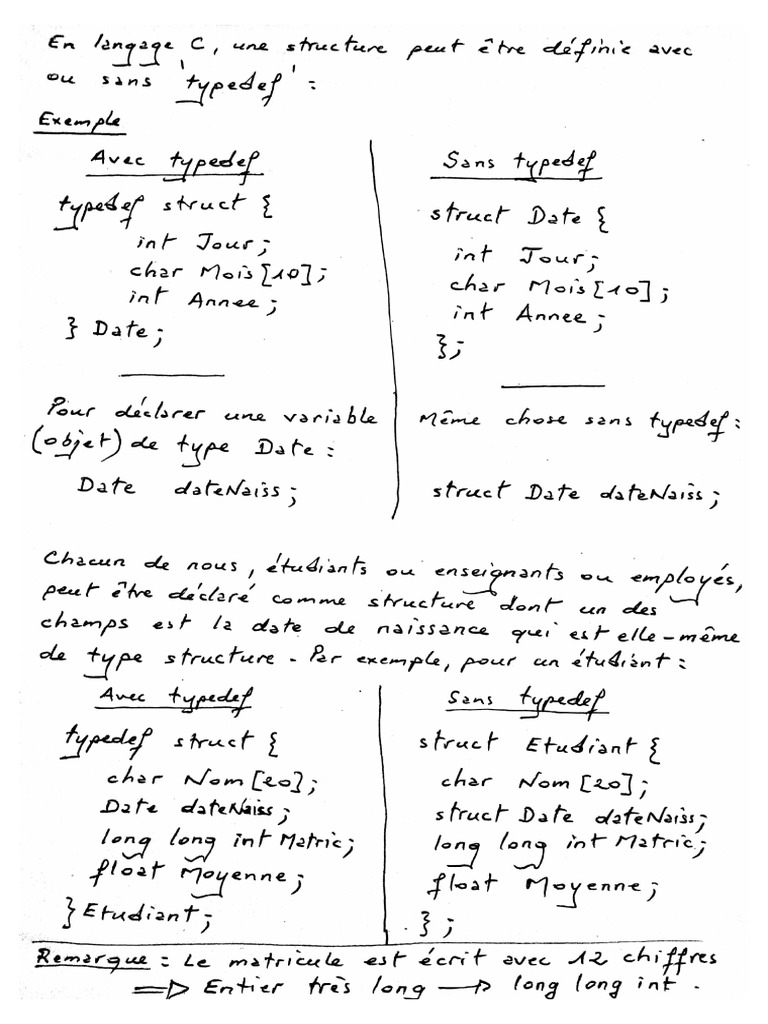 En langage C, une structure peut être définie avec
ou sans 'typedef' :
Exemple
Avec typedef
typedef struct {
int Jour;
char Mois[10];
int Annee;
} Date;
Pour déclarer une variable
(objet) de type Date :
Date dateNaiss;
Sans typedef
struct Date {
int Jour;
char Mois[10];
int Annee;
};
Même chose sans typedef :
struct Date dateNaiss;
Chacun de nous, étudiants ou enseignants ou employés,
peut être déclaré comme structure dont un des
champs est la date de naissance qui est elle-même
de type structure. Par exemple, pour un étudiant :
Avec typedef
typedef struct {
char Nom[20];
Date dateNaiss;
long long int Matric;
float Moyenne;
} Etudiant;
Sans typedef
struct Etudiant {
char Nom[20];
struct Date dateNaiss;
long long int Matric;
float Moyenne;
};
Remarque : Le matricule est écrit avec 12 chiffres
⇒ Entier très long → long long int.